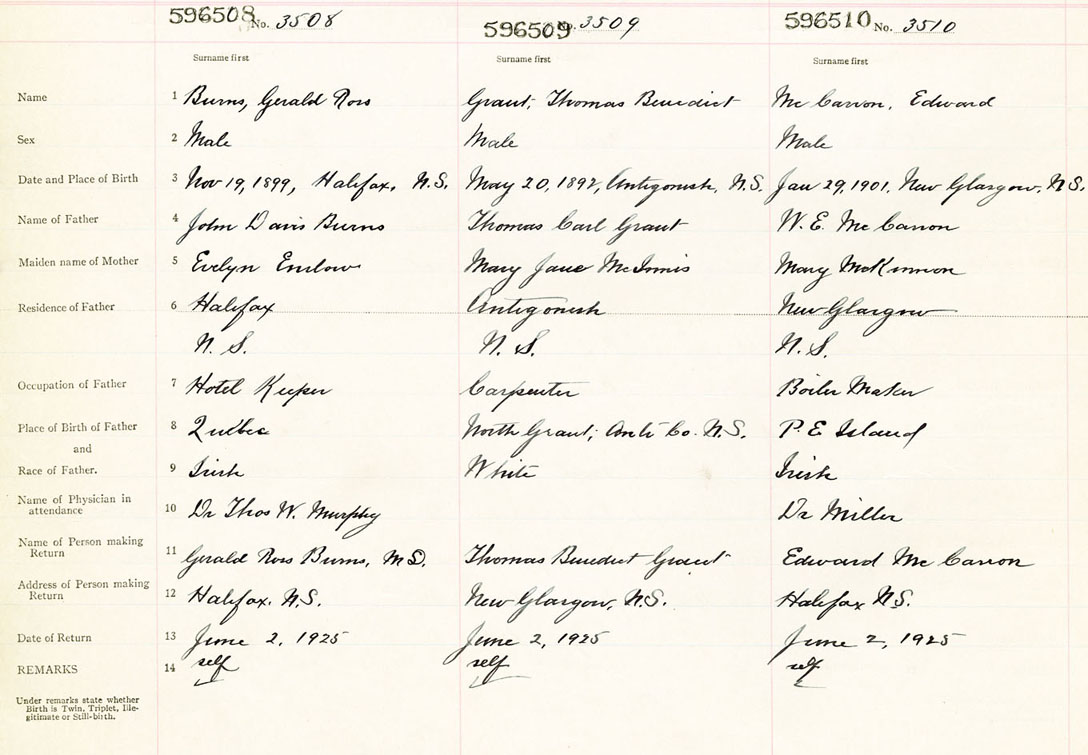 596508 No. 3508 596509 No. 3509 596510 No. 3510
Surname first Surname first Surname first
Name 1 Burns, Gerald Ross Grant, Thomas Benedict Mc Carron, Edward
Sex 2 Male Male Male
Date and Place of Birth 3 Nov 19, 1899, Halifax, N.S. May 20, 1892, Antigonish, N.S. Jan 29, 1901, New Glasgow, N.S.
Name of Father 4 John Davis Burns Thomas Carl Grant W. E. Mc Carron
Maiden name of Mother 5 Evelyn Enslow Mary Jane McInnis Mary McKinnon
Residence of Father 6 Halifax Antigonish New Glasgow
N. S. N. S. N. S.
Occupation of Father 7 Hotel Keeper Carpenter Boiler Maker
Place of Birth of Father 8 Quebec North Grant, Anti Co. N.S. P. E Island
and
Race of Father. 9 Irish White Irish
Name of Physician in
attendance 10 Dr Thos W. Murphy Dr Miller
Name of Person making
Return 11 Gerald Ross Burns, M.D. Thomas Benedict Grant Edward Mc Carron
Address of Person making
Return 12 Halifax. N.S. New Glasgow, N.S. Halifax N.S.
Date of Return 13 June 2, 1925 June 2, 1925 June 2, 1925
REMARKS 14 self self self
Under remarks state whether
Birth is Twin, Triplet, Ille-
gitimate or Still-birth.